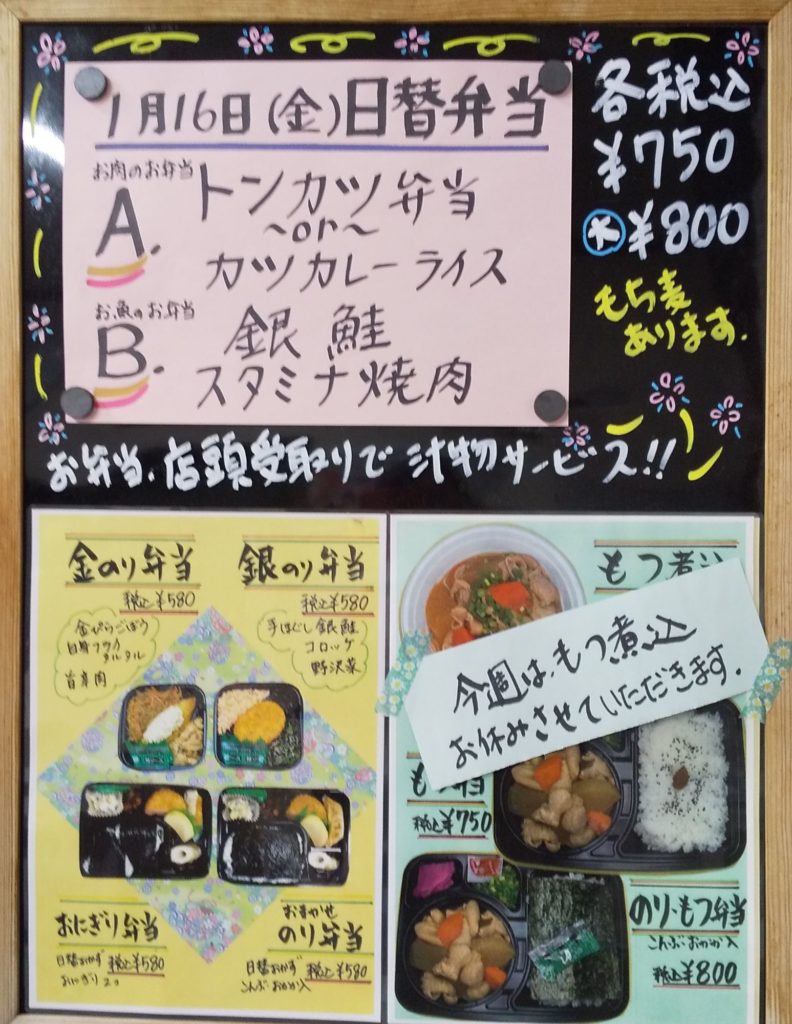 1月16日(金)日替弁当
お肉のお弁当
A. トンカツ弁当
~or~
カツカレーライス
お魚のお弁当
B. 銀鮭
スタミナ焼肉
各税込
¥750
大¥800
もち麦
あります.
お弁当、店頭受取りで 汁物サービス!!
金のり弁当
税込¥580
金ぴらごぼう
白身フライ
タルタル
旨辛肉
銀のり弁当
税込¥580
手ほぐし銀鮭
コロッケ
野沢菜
おにぎり弁当
日替おかず 税込¥580
おにぎり2コ
おまかせ
のり弁当
日替おかず 税込¥580
こんぶ・おかか入
もつ煮込
今週は、もつ煮込
お休みさせていただきます.
税込¥750
のり・もつ弁当
こんぶ・おかか入
税込¥800